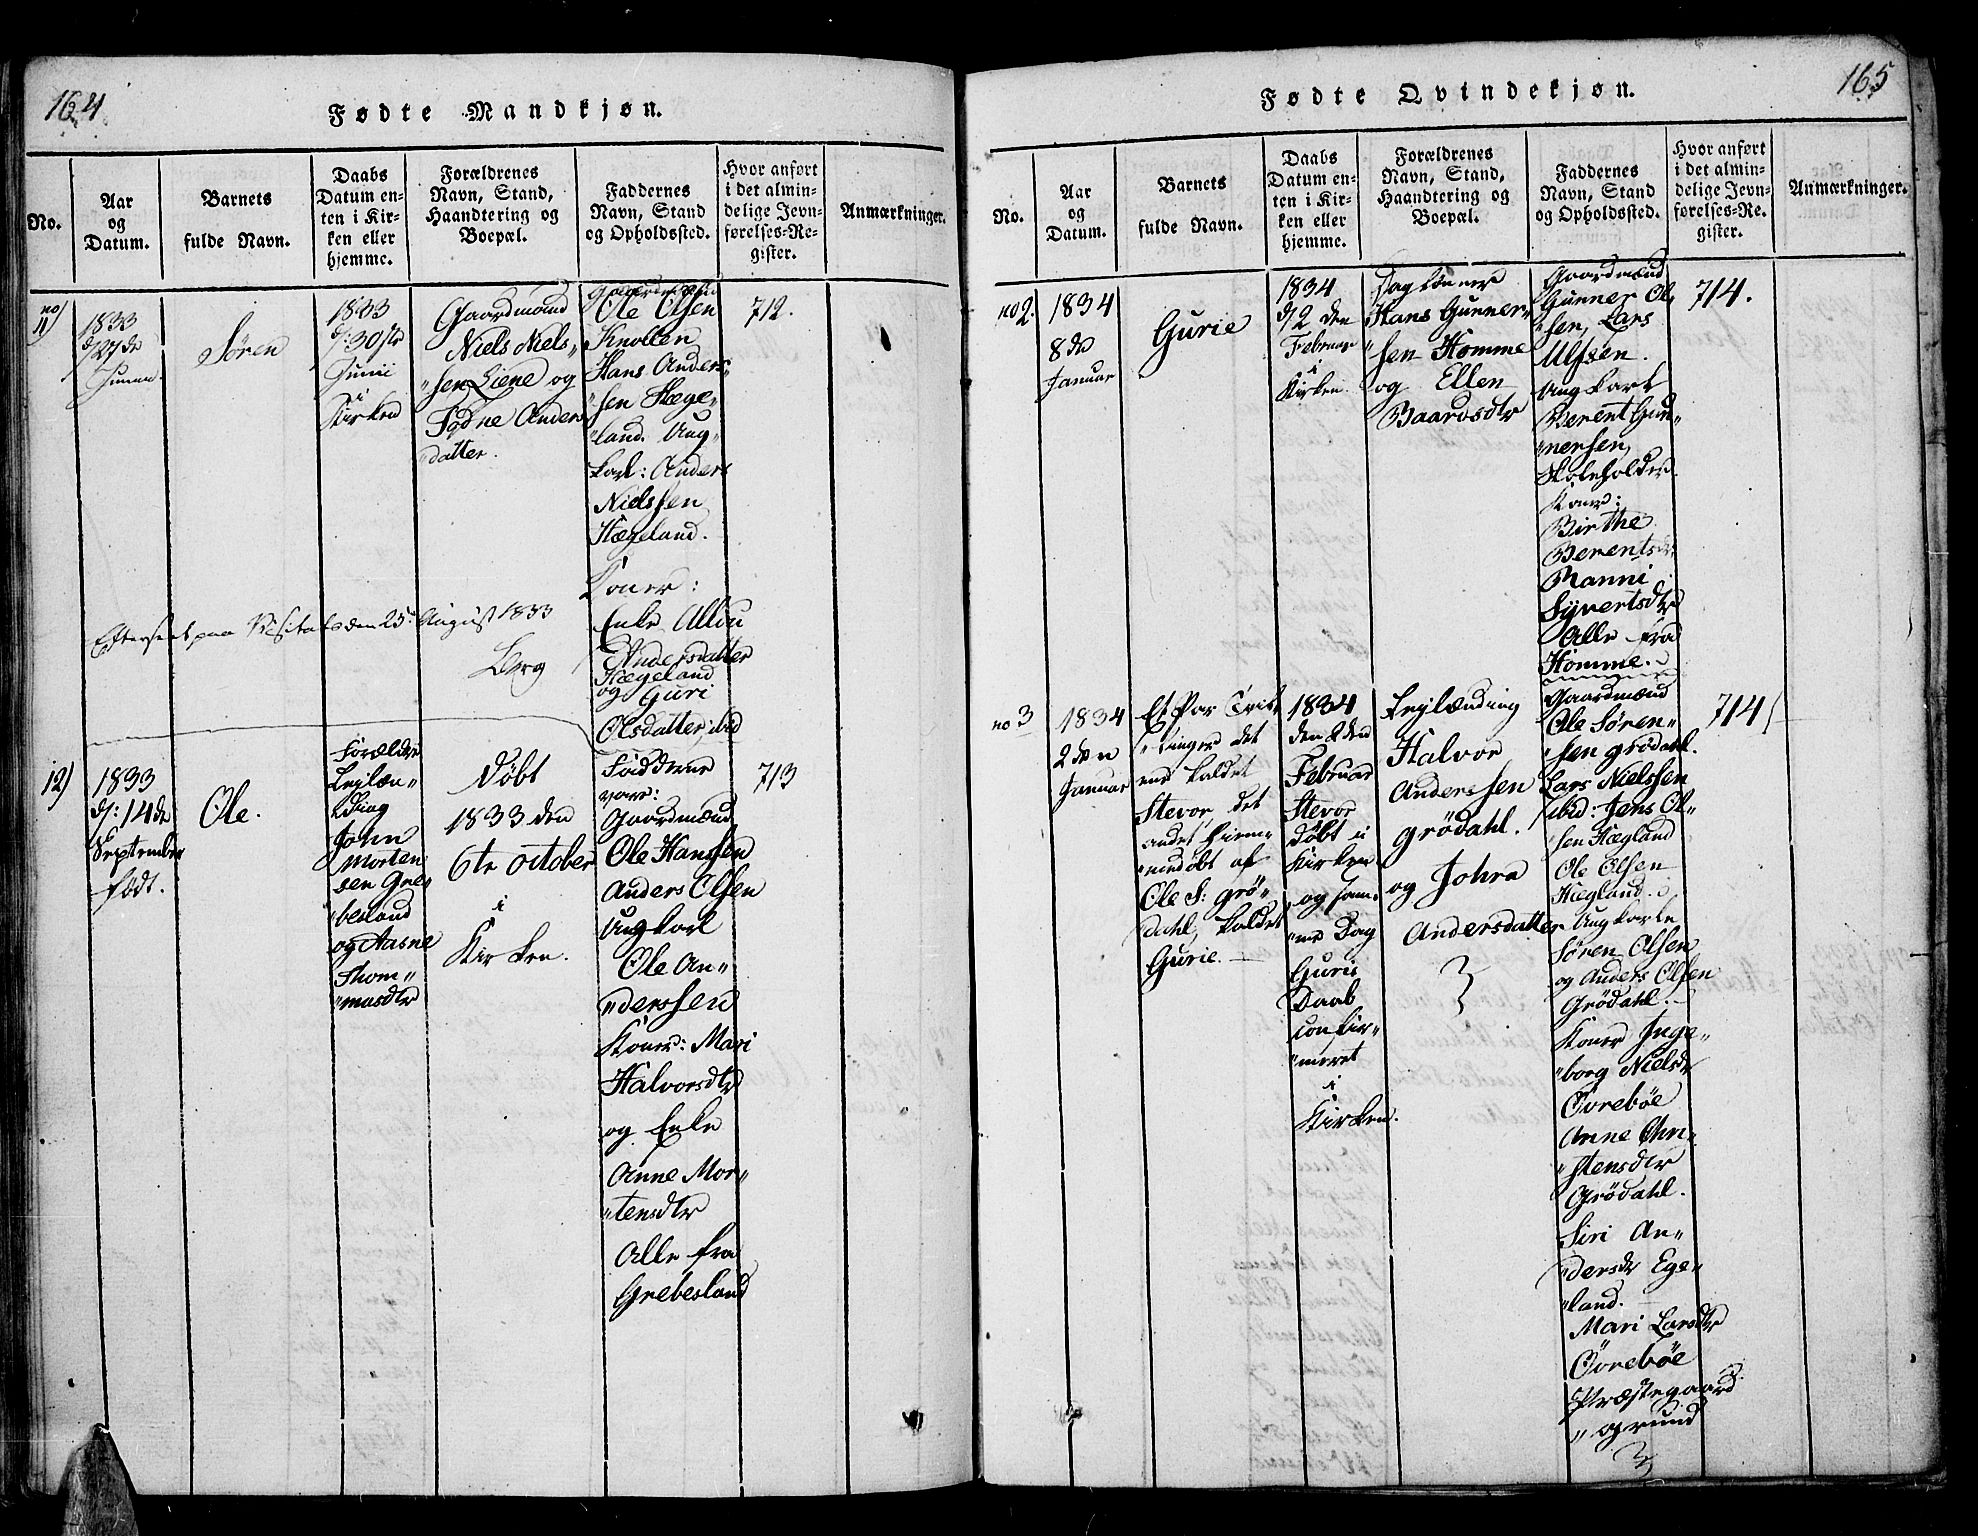 164
Fødte Mandkjøn.
No.
Aar
og
Datum.
Barnets
fulde Navn.
Daabs
Datum en-
ten i Kir-
ken eller
hjemme.
Forældrenes
Navn, Stand,
Haandtering og
Boepæl.
Faddernes
Navn, Stand
og Opholdssted.
Hvor anført
i det almin-
delige Jevn-
førelses-Re-
gister.
Anmærkninger.
no
11)
1833
d/27de
Søren
1833
d/:30te
Junii
i
Kirken
Gaardmand
Niels Niels„
„sen Liene og
Todne Anders
„datter.
Gaardmænd
Ole Olsen
Knollen
Hans Anders„
„sen Hæge„
„land. Ung„
karl: Anders
Nielssen
Hægeland.
Koner:
Enke Allou
Andersdatter
Hægeland
og Guri
Olsdatter ibid
712.
Efterseet paa Visitats den 25. August 1833
Berg
12)
1833
d/: 14de
September
født.
Ole.
Forældre
Lejlæn„
„ding
John
Morten
sen Gre„
„besland
og Aasne
Thom„
„masdtr
Døbt
1833 den
6te October
i
Kirken.
Fadderne
vare:
Gaardmænd
Ole Hanssen
Anders Olsen
Ungkarl
Ole An„
„derssen
Koner: Mari
Halvorsdtr
og Enke
Anne Mor„
„tensdtr
Alle fra
Grebesland
713
165
Fødte Qvindekjøn.
No.
Aar
og
Datum.
Barnets
fulde Navn.
Daabs
Datum en-
ten i Kir-
ken eller
hjemme.
Forældrenes
Navn, Stand,
Haandtering og
Boepæl.
Faddernes
Navn, Stand
og Opholdssted.
Hvor anført
i det almin-
delige Jevn-
førelses-Re-
gister.
Anmærkninger.
no 2.
1834
8de
Januar
Gurie
1834
d/2 den
Februar
i
Kirken.
Daglønner
Hans Gunner„
„sen Homme
og Ellen
Baardsdtr
Gaardmænd
Gunner Ol„
„sen, Lars
Ulfsen.
Ungkarl
Berent Gun„
„nersen,
Skoleholder.
Koner:
Birthe
Berentsdr
Ranni
Syvertsdtr
Alle fra
Homme.
714.
no 3
1834
2den
Januar
Et Par Tvil
„linger det
ene kaldet
Stevor, det
andet hiem„
„medøbt af
Ole S: Grö„
dahl, kaldet
Gurie.
1834
den 2den
Februar
Stevor
døbt i
Kirken
og sam„
„me Dag
Guris
Daab
confir„
„meret
i
Kirken.
Lejlænding
Halvor
Anderssen
Grödahl.
og Johra
Andersdatter
Gaardmænd
Ole Søren„
„sen Grödahl.
Lars Nielssen
ibid: Jens Ol„
„sen Hægland
Ole Olsen
Hægland.
Ungkarle
Søren Olsen
og Anders Olsen
Grödahl.
Koner Inge„
„borg Nielsdr
Övrebøe
Anne Chri„
„stensdtr
Grödahl.
Siri An„
„dersdr Ege„
„land.
Mari Larsdtr
Övrebøe
Præstegaard
„ogrund
714